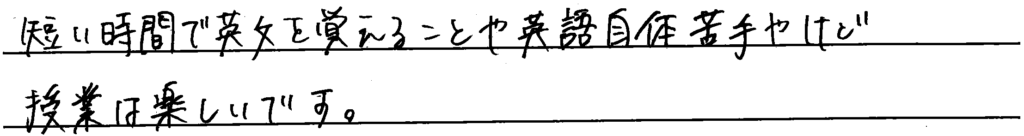 短い時間で英文を覚えることや英語自体苦手やけど
授業は楽しいです。